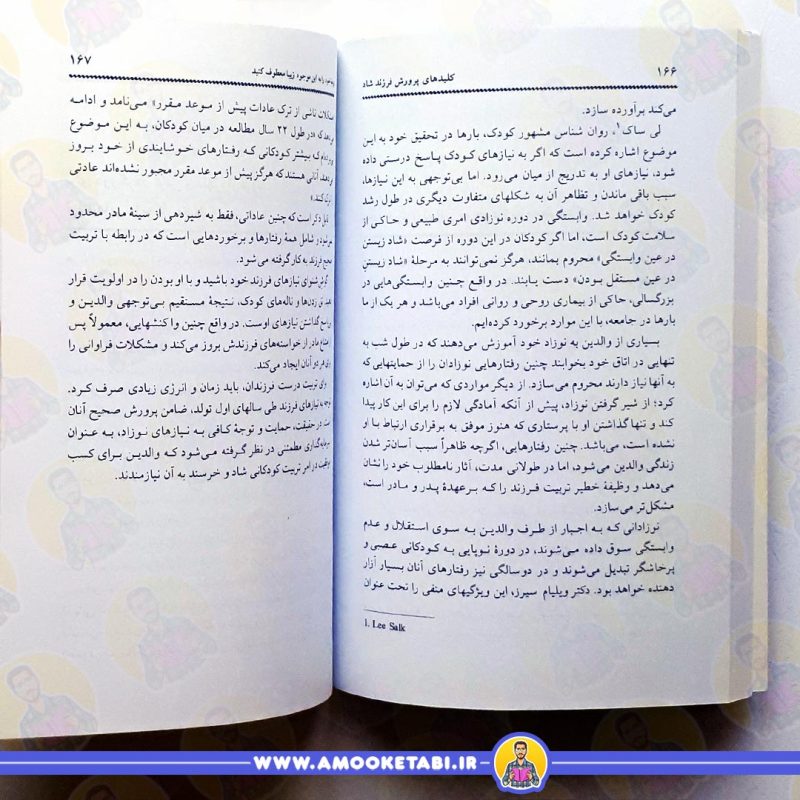 ۱۶۶
کلیدهای پرورش فرزند شاد
می‌کند برآورده سازد.
لی ساک۱، روان شناس مشهور کودک، بارها در تحقیق خود به این
موضوع اشاره کرده است که اگر به نیازهای کودک پاسخ درستی داده
شود، نیازهای او به تدریج از میان می‌رود. اما بی‌توجهی به این نیازها،
سبب باقی ماندن و تظاهر آن به شکلهای متفاوت دیگری در طول رشد
کودک خواهد شد. وابستگی در دوره نوزادی امری طبیعی و حاکی از
سلامت کودک است، اما اگر کودکان در این دوره از فرصت «شاد زیستن
در عین وابستگی» محروم بمانند، هرگز نمی‌توانند به مرحلهٔ «شاد زیستنِ
در عین مستقل بودن» دست یابند. در واقع چنین وابستگی‌هایی در
بزرگسالی، حاکی از بیماری روحی و روانی افراد می‌باشد و هر یک از ما
بارها در جامعه، با این موارد برخورد کرده‌ایم.
بسیاری از والدین به نوزاد خود آموزش می‌دهند که در طول شب به
تنهایی در اتاق خود بخوابند چنین رفتارهایی نوزادان را از حمایتهایی که
به آنها نیاز دارند محروم می‌سازد. از دیگر مواردی که می‌توان به آن اشاره
کرد؛ از شیر گرفتن نوزاد، پیش از آنکه آمادگی لازم را برای این کار پیدا
کند و تنها گذاشتن او با پرستاری که هنوز موفق به برقراری ارتباط با او
نشده است، می‌باشد. چنین رفتارهایی، اگرچه ظاهراً سبب آسان‌تر شدن
زندگی والدین می‌شود، اما در طولانی مدت، آثار نامطلوب خود را نشان
می‌دهد و وظیفهٔ خطیر تربیت فرزند را که بر عهدهٔ پدر و مادر است،
مشکل‌تر می‌سازد.
نوزادانی که به اجبار از طرف والدین به سوی استقلال و عدم
وابستگی سوق داده می‌شوند، در دورهٔ نوپایی به کودکانی عصبی و
پرخاشگر تبدیل می‌شوند و در دوسالگی نیز رفتارهای آنان بسیار آزار
دهنده خواهد بود. دکتر ویلیام سیرز، این ویژگیهای منفی را تحت عنوان
1. Lee Salk
را به این موجود زیبا معطوف کنید
۱۶۷
ناشی از ترک عادات پیش از موعد مقرر» می‌نامد و ادامه
که «در طول ۲۲ سال مطالعه در میان کودکان، به این موضوع
که بیشتر کودکانی که رفتارهای خوشایندی از خود بروز
آنانی هستند که هرگز پیش از موعد مقرر مجبور نشده‌اند عادتی
کنند.»
ذکر است که چنین عاداتی، فقط به شیردهی از سینهٔ مادر محدود
شامل همهٔ رفتارها و برخوردهایی است که در رابطه با تربیت
فرزند به کار گرفته می‌شود.
شنوای نیازهای فرزند خود باشید و با او بودن را در اولویت قرار
زدن‌ها و ناله‌های کودک، نتیجهٔ مستقیم بی‌توجهی والدین و
گذاشتن نیازهای اوست. در واقع چنین واکنشهایی، معمولاً پس
مادر از خواسته‌های فرزندش بروز می‌کند و مشکلات فراوانی را
در آنان ایجاد می‌کند.
برای تربیت درست فرزندان، باید زمان و انرژی زیادی صرف کرد.
توجه به نیازهای فرزند طی سالهای اول تولد، ضامن پرورش صحیح آنان
است. در حقیقت، حمایت و توجهٔ کافی به نیازهای نوزاد، به عنوان
سرمایه‌گذاری مطمئنی در نظر گرفته می‌شود که والدین برای کسب
موفقیت در امر تربیت کودکانی شاد و خرسند به آن نیازمندند.
WWW.AMOOKETABI.IR